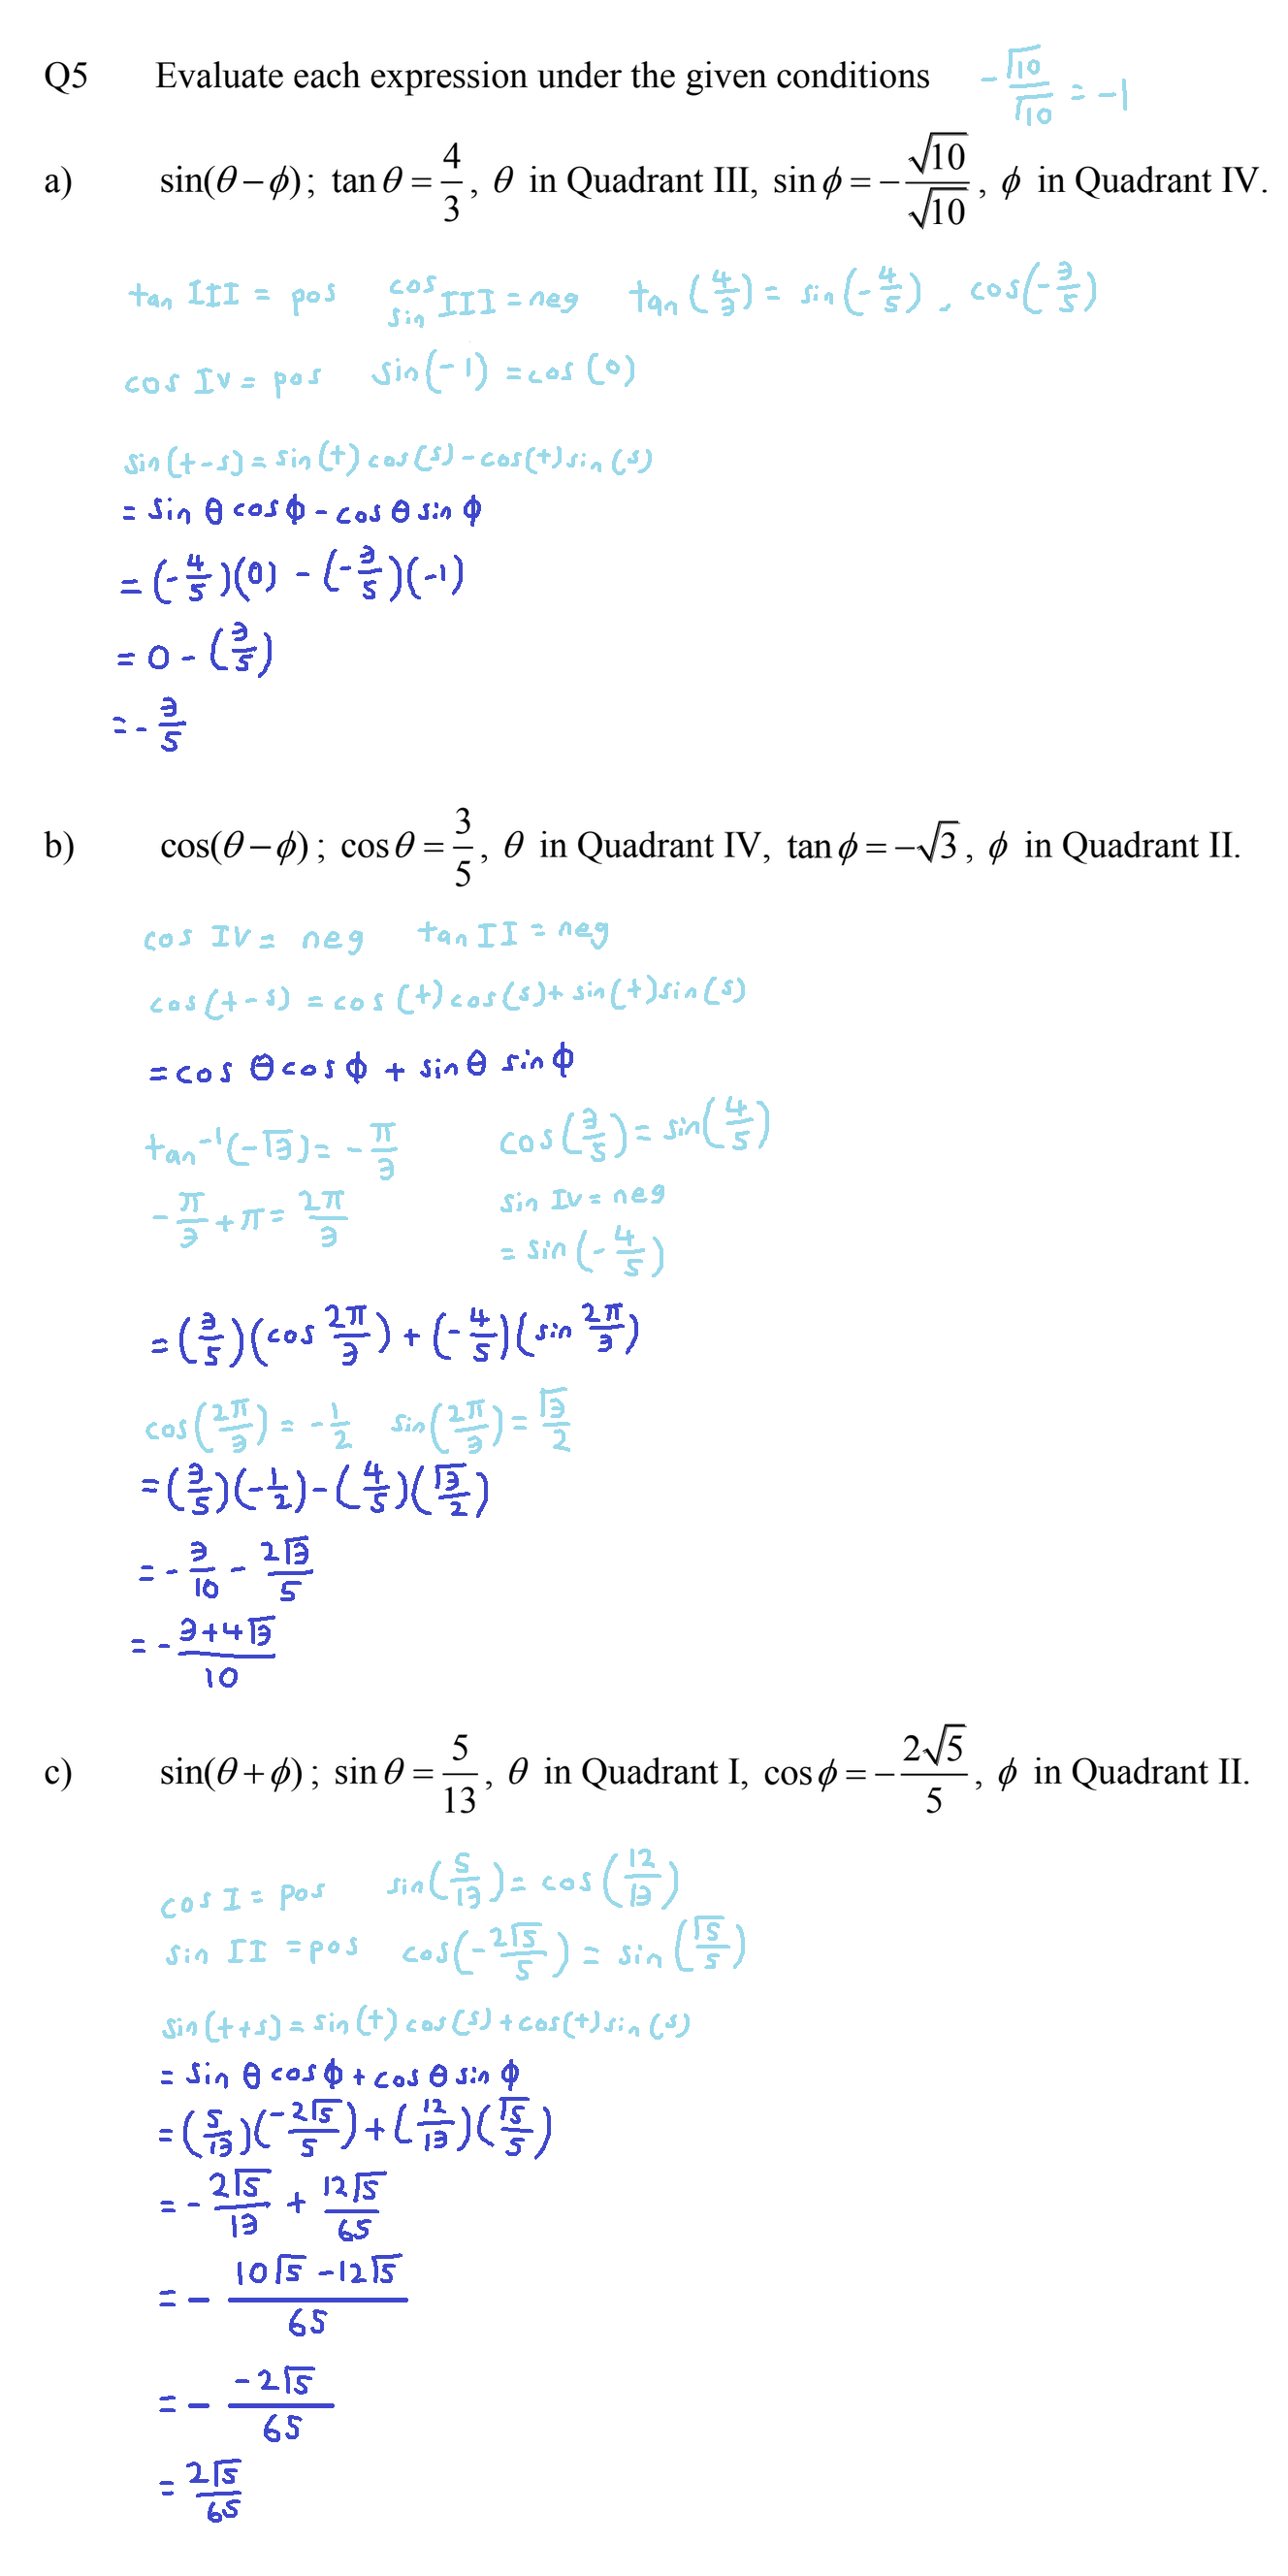 Q5 Evaluate each expression under the given conditions -√10/√10 = -1
a) sin(θ−ϕ); tan θ = 4/3, θ in Quadrant III, sin ϕ = −√10/√10, ϕ in Quadrant IV.
tan III = pos cos sin III = neg tan(4/3) = sin(-4/5), cos(-3/5)
cos IV = pos sin(-1) = cos(0)
sin(t-s) = sin(t)cos(s)-cos(t)sin(s)
= sin θ cos ϕ - cos θ sin ϕ
= (-4/5)(0) - (-3/5)(-1)
= 0 - (3/5)
= -3/5
b) cos(θ−ϕ); cos θ = 3/5, θ in Quadrant IV, tan ϕ = −√3, ϕ in Quadrant II.
cos IV = neg tan II = neg
cos(t-s) = cos(t)cos(s)+sin(t)sin(s)
= cos θ cos ϕ + sin θ sin ϕ
tan⁻¹(-√3) = -π/3 cos(3/5) = sin(4/5)
-π/3 + π = 2π/3 sin IV = neg
= sin(-4/5)
= (3/5)(cos 2π/3) + (-4/5)(sin 2π/3)
cos(2π/3) = -1/2 sin(2π/3) = √3/2
= (3/5)(-1/2) - (4/5)(√3/2)
= -3/10 - 2√3/5
= -(3+4√3)/10
c) sin(θ+ϕ); sin θ = 5/13, θ in Quadrant I, cos ϕ = −2√5/5, ϕ in Quadrant II.
cos I = pos sin(5/13) = cos(12/13)
sin II = pos cos(-2√5/5) = sin(√5/5)
sin(t+s) = sin(t)cos(s)+cos(t)sin(s)
= sin θ cos ϕ + cos θ sin ϕ
= (5/13)(-2√5/5) + (12/13)(√5/5)
= -2√5/13 + 12√5/65
= -(10√5 -12√5)/65
= - -2√5/65
= 2√5/65